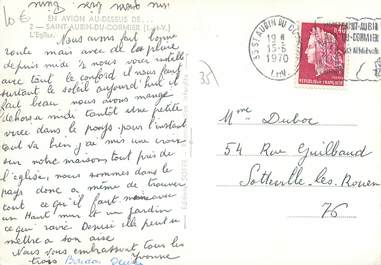 10 €
EN AVION AU-DESSUS DE...
2 - SAINT-AUBIN-DU-CORMIER (I.-et-V.)
L'Église
Nous avons fait bonne
route mais avec de la pluie
depuis midi nous voici installé
avec tout le confort il nous faut
surtout le soleil aujourd'hui il
fait beau nous avons mangé
dehors a midi tantôt une petite
virée dans le pays pour l'instant
tout va bien j'ai mis une croix
sur notre maison tout près de
l'église, nous sommes dans le
pays donc a même de trouver
tout ce qu'il faut avec
un Haut mur et un jardin
ce qui ravie Denise elle peut se
mettre a son aise
Nous vous embrassons tous les
trois Yvonne
35
35 ST AUBIN DU
19 H
15-5
1970
I.-V.
SAINT-AUBIN
DU-CORMIER
RÉPUBLIQUE FRANÇAISE
Mme Duboc
54 Rue Guilbaud
Sotteville-les-Rouen
76